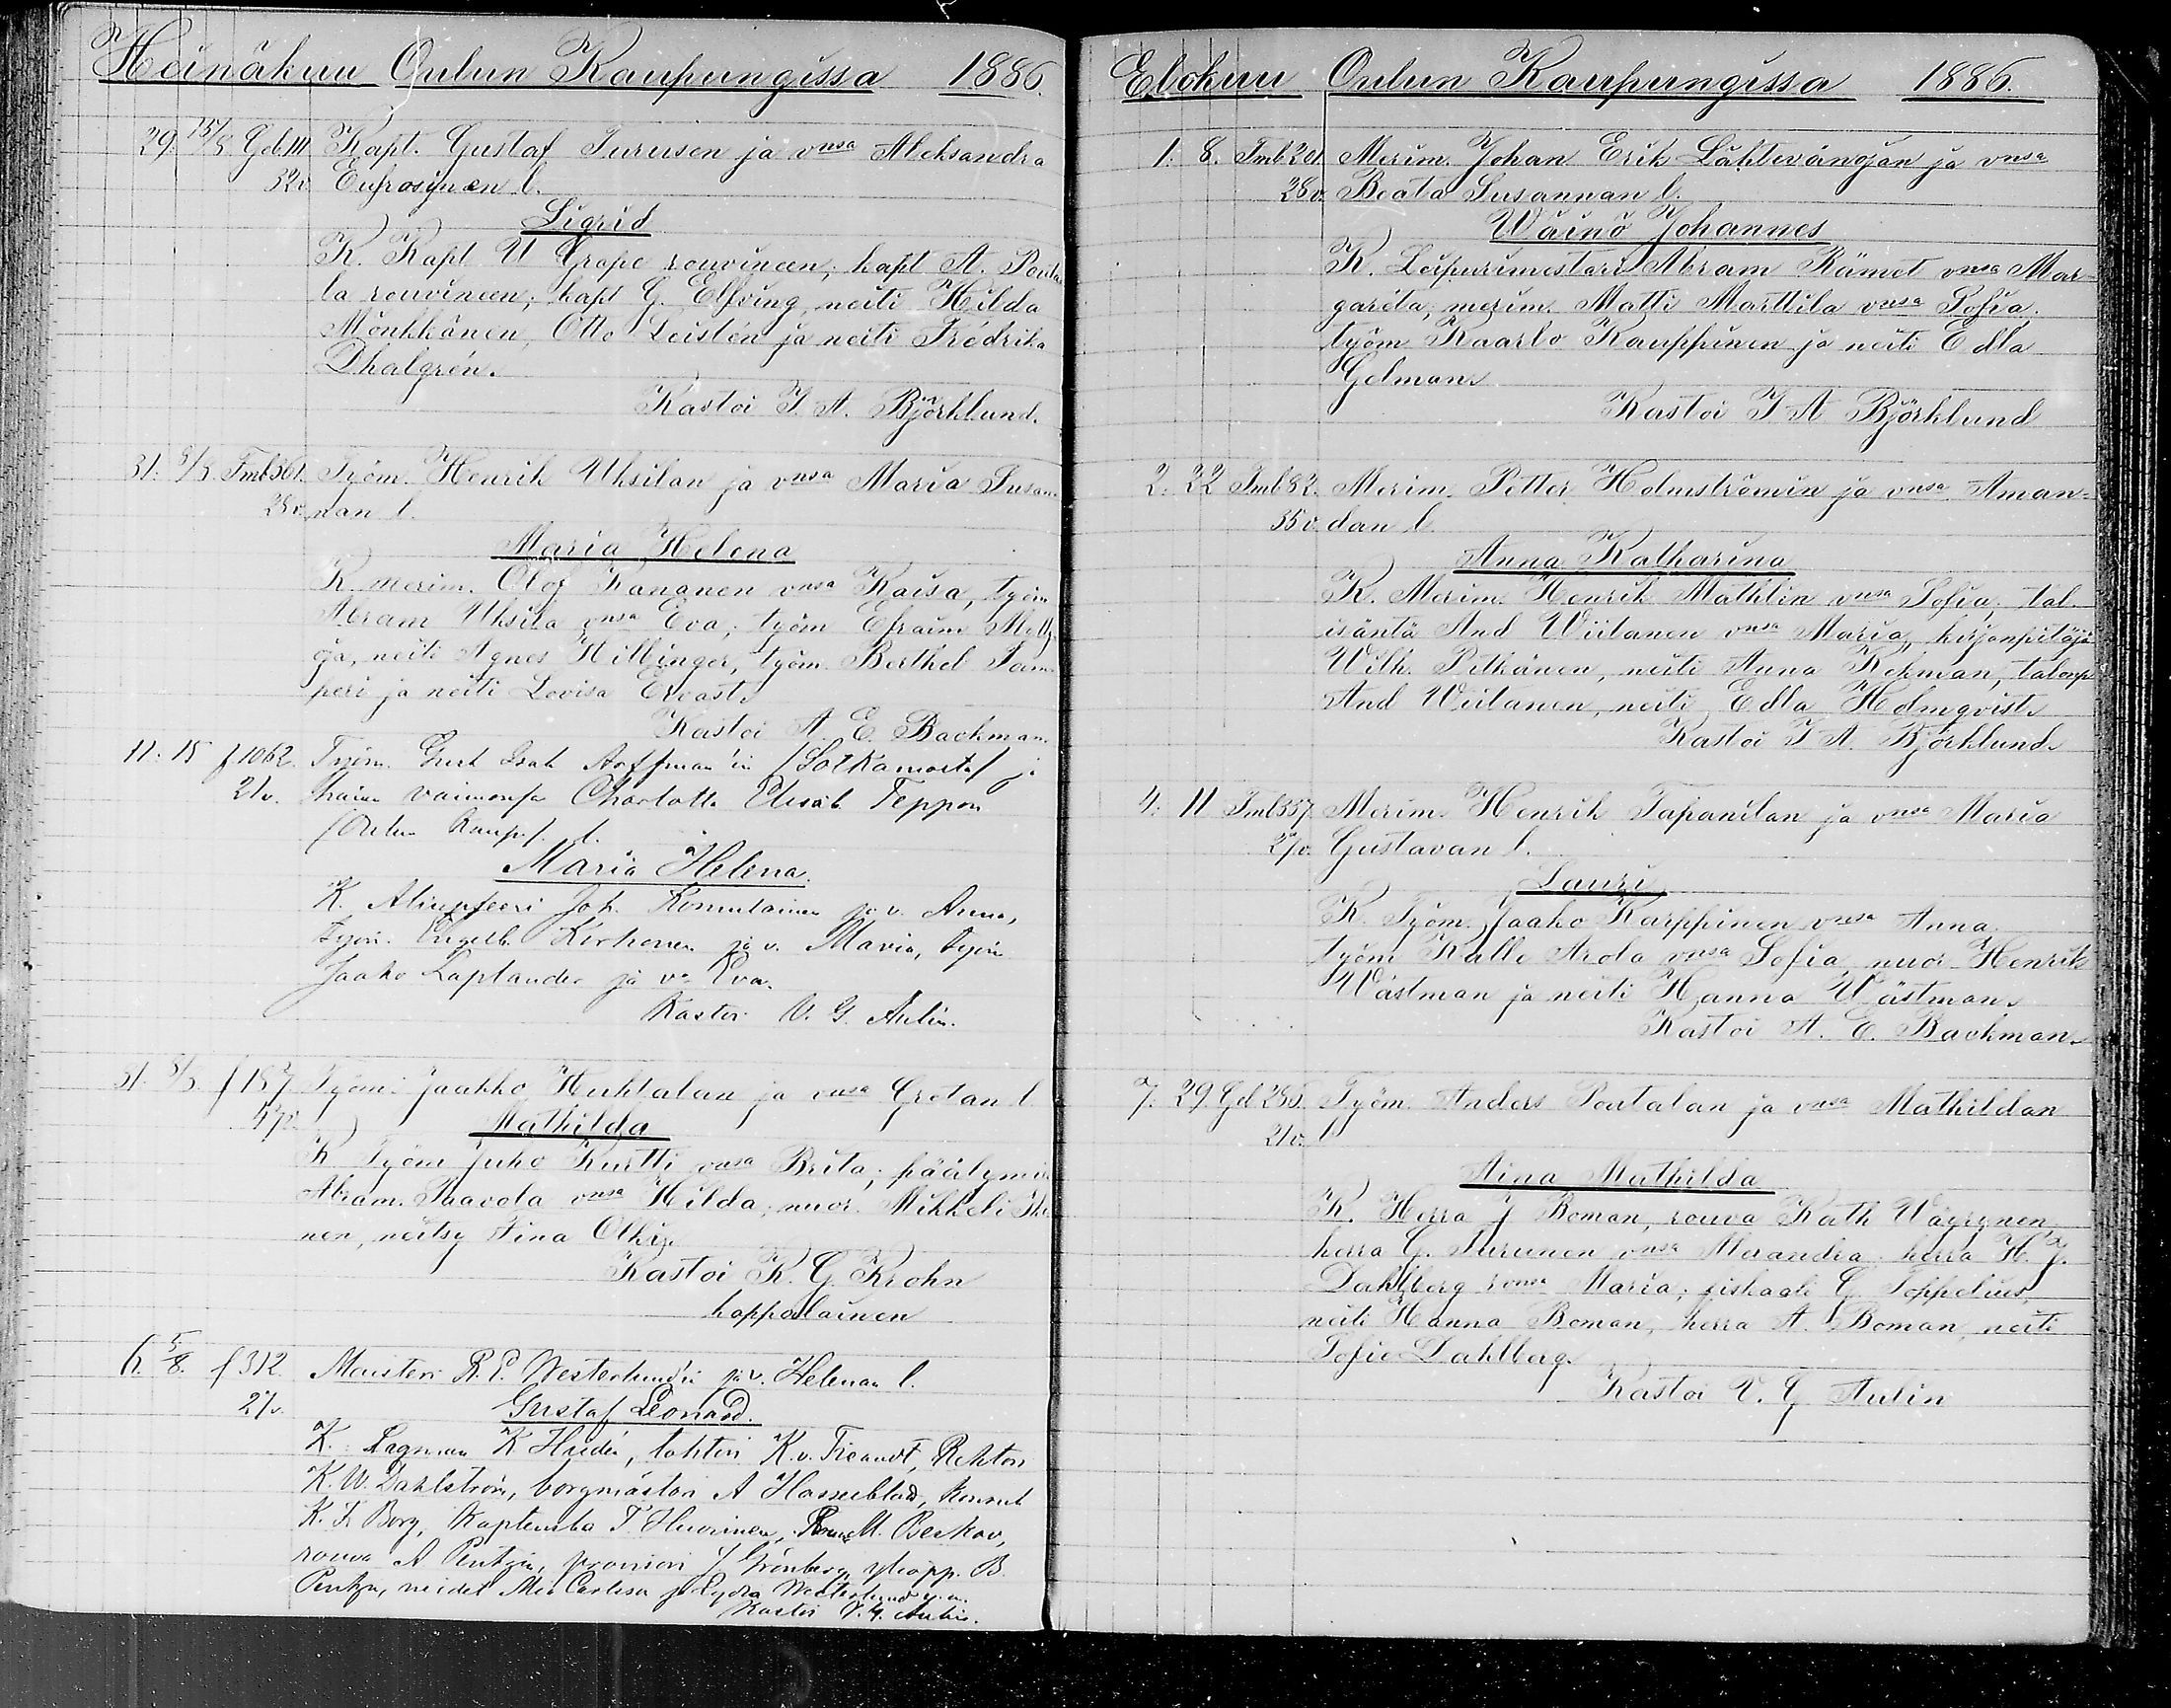 Heinäkuu Oulun Kaupungissa 1886.
29. 15/8. Kapt. Gustaf Turusen ja vnsa Aleksandra
32v. Eufrosynen l.
Sigrid
K. Kapt U Grape rouvineen; kapt A.
la rouvineen; kapt G. Elfving, neiti Hilda
Mönkkönen, Otto Leistén ja neiti Frédrika
Dhalgrén.
Kastoi J. A. Björklund.
31. 5/8. Tmb361. Työm. Henrik Uksilan ja vnsa Maria Susan
28v. nan l.
Maria Helena
K. merim. Olof Kananen vnsa Kaisa, työm
Abram Uksila vnsa Eva; työm Efraim
oja, neiti Agnes Hillinger, työm. Berthel Tam
peri ja neiti Lovisa Ervast.
Kastoi A. E. Backman.
11. 15 f 1062. Työm. (Sotkamosta) ja
21v. hänen vaimonsa Charlotta Elisab. Teppon
(Oulun Kaup.) l.
Maria Helena.
K. Aliupseeri Joh. Komulainen ja v. Anna,
työm. Engelb. Kerhonen ja v. Maria, työm
Jaako Laplander ja v. Eva.
Kastoi V. G. Aulin.
31. 8/8. f 187 Työm. Jaakko Huhtalan ja vnsa Gretan l.
47v. Mathilda
K Työm Juho Kurtti vnsa Brita;
Abram. Paavola vnsa Hilda; nuor. Mikkeli
nen, neitsy Tina
Kastoi K. G. Krohn
kappalainen
6. 5/8. f 312. Maisteri R. P. Westerlundin ja v. Helenan l.
27v. Gustaf Leonard.
K. Lagman K. tohtori K. v. Fieandt, Rehtori
K. W. Dahlström, borgmästari A Hasselblad, konsul
K. F. Borg, Kaptenska T. Huurinen, M. Beskov,
rouva A Pentzin, proviisori J Grönberg, B.
Pentzin, neidet Mia Carlsson ja Lydia Westerlund y. m.
Kastoi V. G. Aulin.
Elokuu Oulun Kaupungissa 1886.
1. 8. Tmb201. Merim. Johan Erik Lähtevänojan ja vnsa
28v. Beata Susannan l.
Wäinö Johannes
K. Leipurimestari Abram Rämet vnsa Mar=
gareta; merim. Matti Marttila vnsa Sofia.
työm Kaarlo Kauppinen ja neiti Edla
Gelman.
Kastoi J A Björklund
2. 22 Tmb82. Merim. Petter Holmströmin ja vnsa Aman=
35v. dan l.
Anna Katharina
K. Merim. Henrik Mathlin vnsa Sofia; tal.
isäntä And Wiitanen vnsa Maria, kirjanpitäjä
Wilh. Pitkänen, neiti Anna Kekman, talonp
And Wiitanen, neiti Edla Holmqvist.
Kastoi J A. Björklund.
4. 11 Tmb357. Merim. Henrik Tapanilan ja vnsa Maria
27v. Gustavan l.
Lauri
K. Työm. Jaako Karppinen vnsa Anna
työm Kalle Arola vnsa Sofia, nuor Henrik
Wästman ja neiti Hanna Wästman.
Kastoi A. E. Backman.
7. 29. Gel 286. Työm. Anders Poutalan ja vnsa Mathildan
21v. l.
Aina Mathilda
K. Herra J Boman, rouva Kath Wäyrynen,
herra G. Turunen vnsa Alexandra; herra H. J.
Dahlberg vnsa Maria; fiskaali G Toppelius,
neiti Hanna Boman, herra A. Boman, neiti
Sofie Dahlberg.
Kastoi V. G Aulin